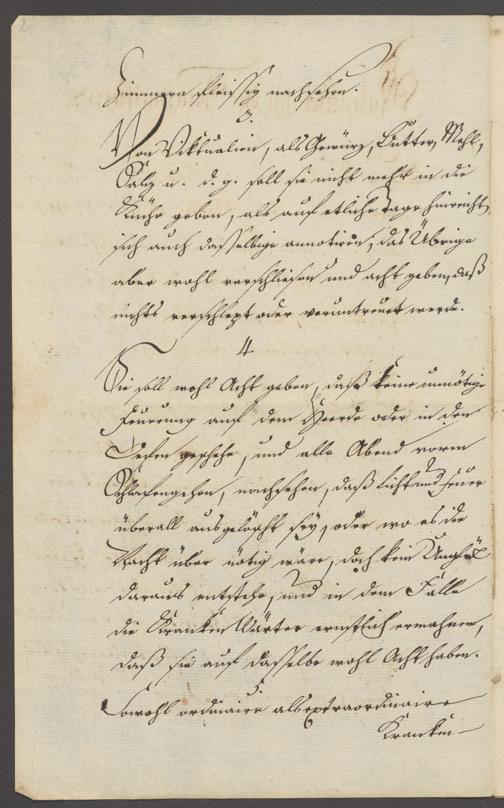 2
Zimmern fleissig nachsehen.
3.
Von Viktualien, als Gewürz, Butter, Mehl,
Salz u. d. g. soll sie nicht mehr in die
Küche geben, als auf etliche Tage hinreicht,
sich auch dasselbige annotiren; das Übrige
aber wohl verschliesen und acht geben, daß
nichts verschlept oder veruntreuet werde.
4
Sie soll wohl Acht geben, daß keine unnötige
Feuerung auf dem Heerde oder in den
Oefen geschehe, und alle Abend vorm
Schlafengehen, nachsehen, daß licht und feuer
überall ausgelöscht sey, oder wo es die
Nacht über nötig wäre, doch kein Unglük
daraus entstehe, und in dem Falle
die Kranken Wärter ernstlich ermahnen,
daß sie auf dasselbe wohl Acht haben.
5.
Sowohl ordinaire als extraordinaire
Kranken-